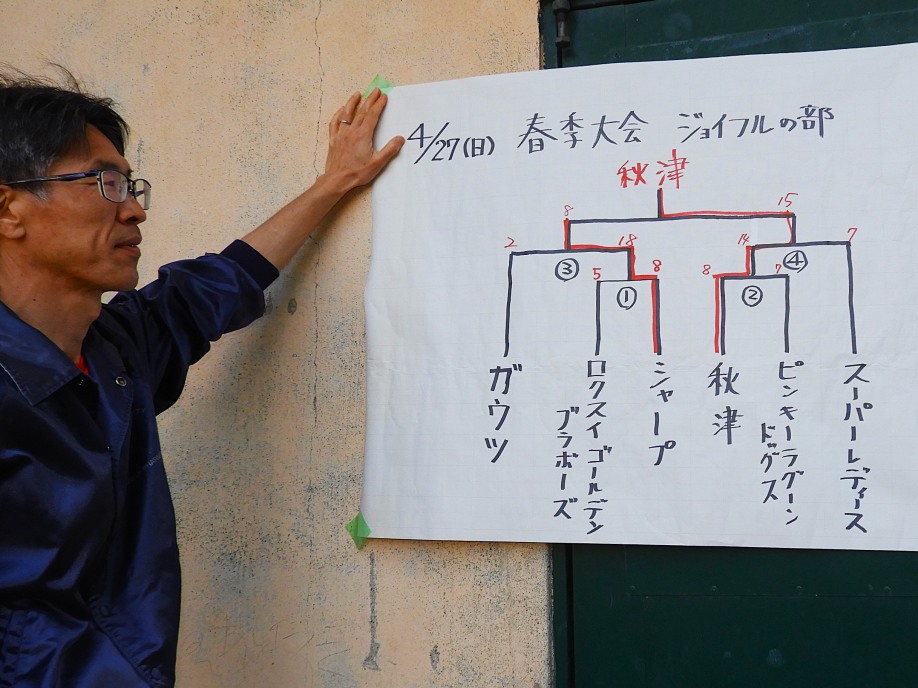 4/27(日) 春季大会 ジョイフルの部
秋津
8 15
2 18 14 7
③ ④
5 8 8 7
① ②
ガウツ
ロクスイゴールデン
ブラボーズ
シャープ
秋津
ピンキーラグーン
ドッグス
スーパーレディース